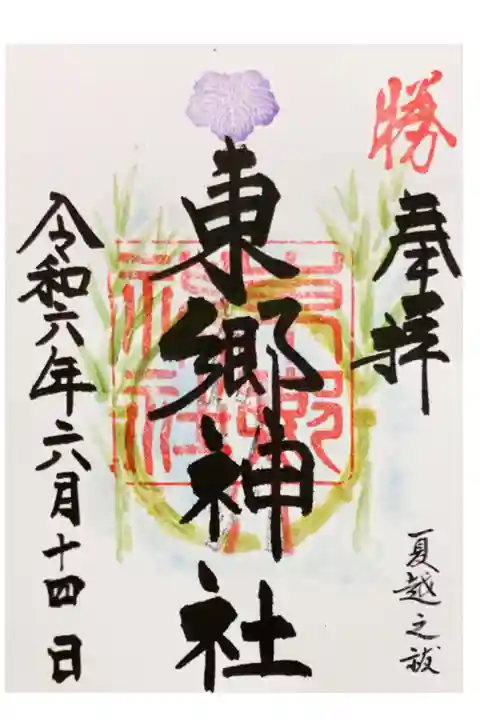 勝
奉拝
夏越之祓
東郷神社
東郷神社
令和六年六月十四日